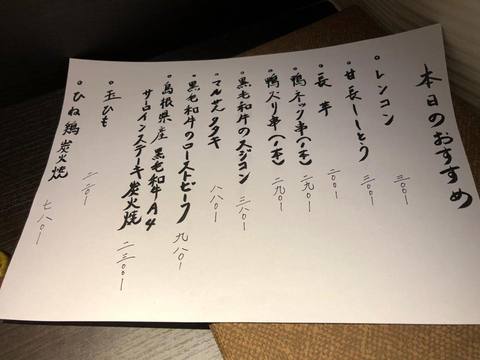 本日のおすすめ
・レンコン 三〇〇ー
・甘長ししとう 三〇〇ー
・長芋 二〇〇ー
・鴨ネック串(一本) 二九〇ー
・鴨ズリ串(一本) 二九〇ー
・黒毛和牛のスジコン 三八〇ー
・マルチョウタタキ 八八〇ー
・黒毛和牛のローストビーフ 九八〇ー
・島根県産 黒毛和牛A4
サーロインステーキ炭火焼 二三〇〇ー
・玉ひも 二二〇ー
・ひね鶏炭火焼 七八〇ー